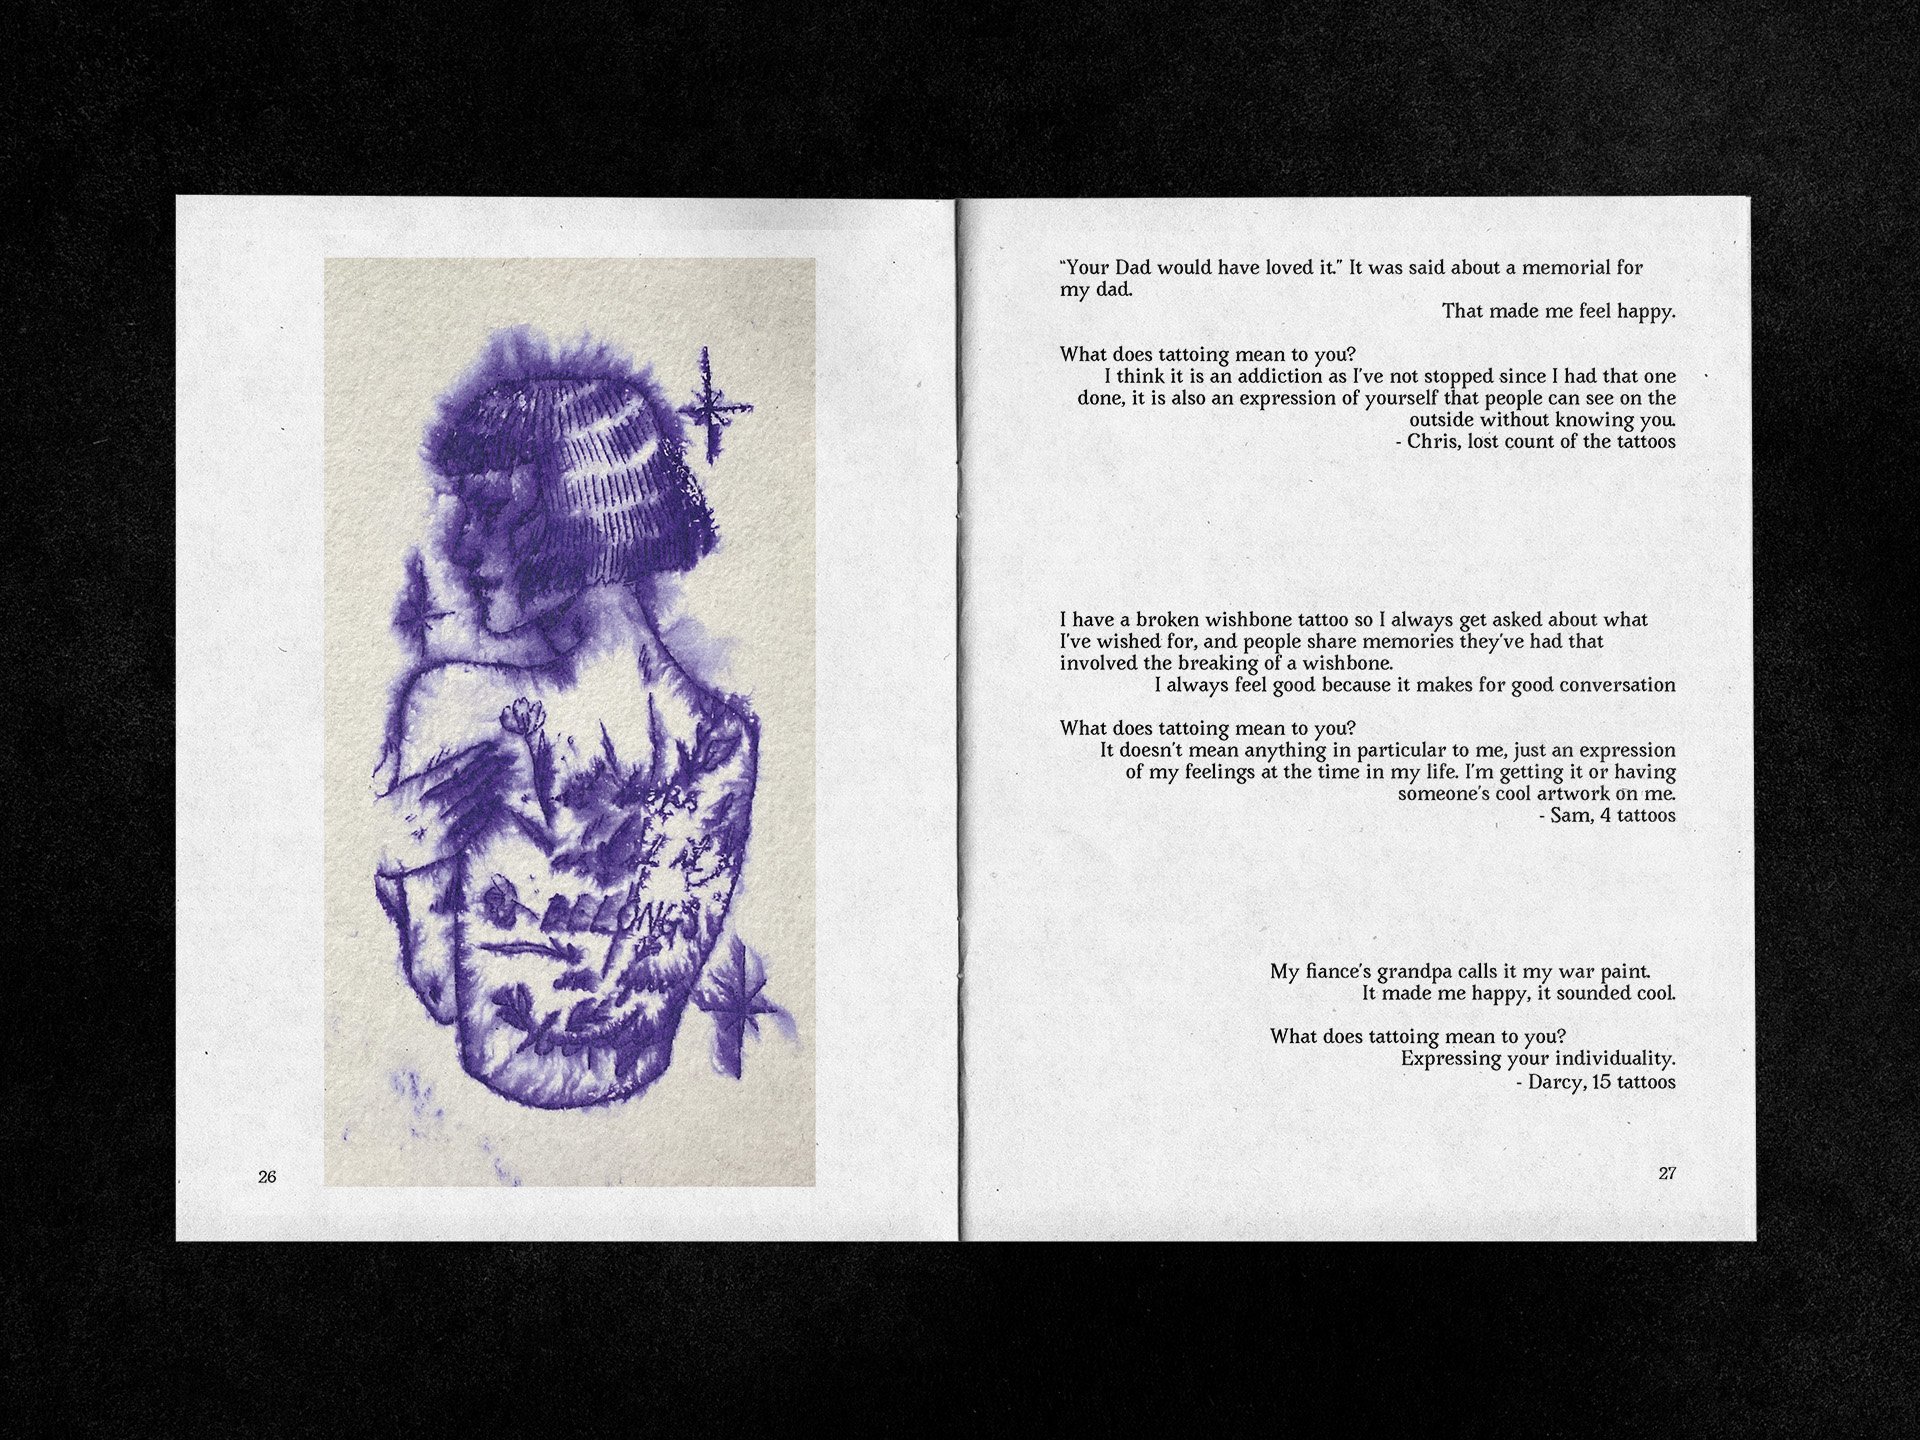 26
“Your Dad would have loved it.” It was said about a memorial for
my dad.
That made me feel happy.
What does tattoing mean to you?
I think it is an addiction as I've not stopped since I had that one
done, it is also an expression of yourself that people can see on the
outside without knowing you.
- Chris, lost count of the tattoos
I have a broken wishbone tattoo so I always get asked about what
I've wished for, and people share memories they've had that
involved the breaking of a wishbone.
I always feel good because it makes for good conversation
What does tattoing mean to you?
It doesn't mean anything in particular to me, just an expression
of my feelings at the time in my life. I'm getting it or having
someone's cool artwork on me.
- Sam, 4 tattoos
My fiance's grandpa calls it my war paint.
It made me happy, it sounded cool.
What does tattoing mean to you?
Expressing your individuality.
- Darcy, 15 tattoos
27